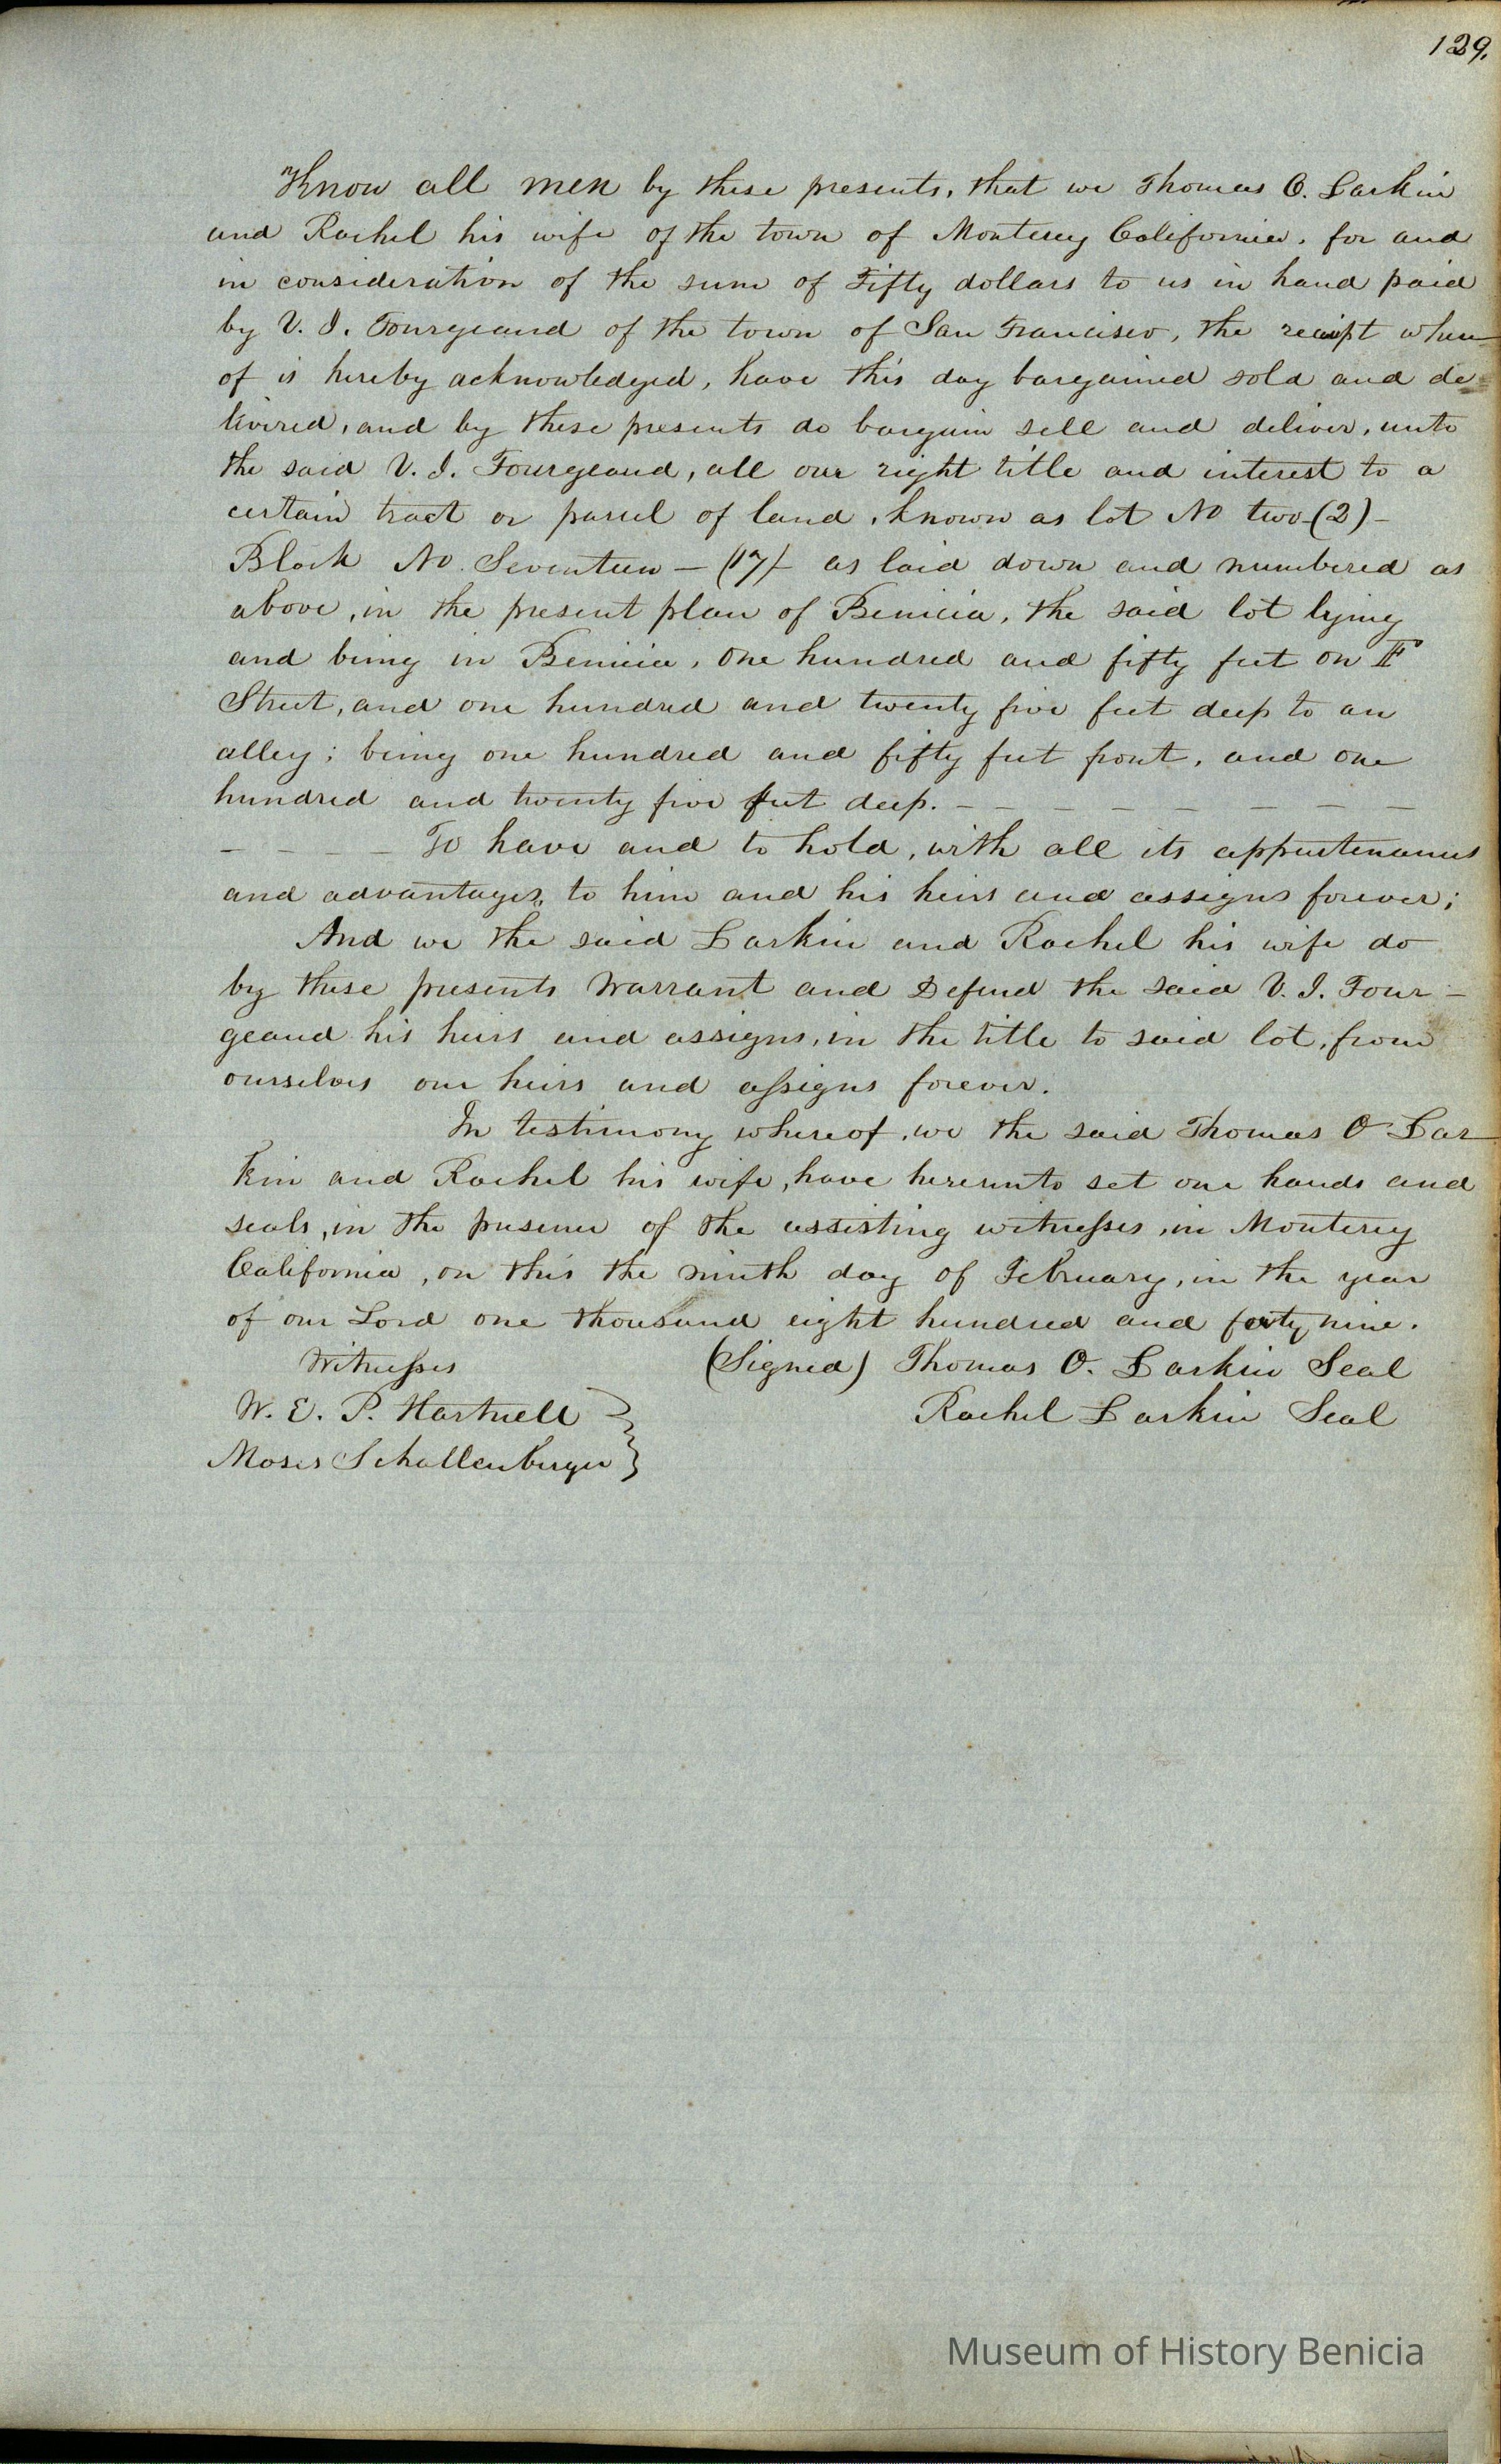 129.
Know all men by these presents, that we Thomas O. Larkin
and Rachel his wife of the town of Monterey California, for and
in consideration of the sum of Fifty dollars to us in hand paid
by V. J. Fourgeaud of the town of San Francisco, the receipt where
of is hereby acknowledged, have this day bargained sold and de=
livered, and by these presents do bargain sell and deliver, unto
the said V. J. Fourgeaud, all our right title and interest to a
certain tract or parcel of land, known as lot No two-(2)-
Block No. Seventeen - (17)- as laid down and numbered as
above, in the present plan of Benicia, the said lot lying
and being in Benicia, One hundred and fifty feet on F
Street, and one hundred and twenty five feet deep to an
alley; being one hundred and fifty feet front, and one
hundred and twenty five feet deep. - - - - - - - -
- - - - To have and to hold, with all its appurtenances
and advantages, to him and his heirs and assigns forever;
And we the said Larkin and Rachel his wife do
by these presents Warrant and Defend the said V. J. Four-
geaud his heirs and assigns, in the title to said lot, from
ourselves our heirs and assigns forever.
In testimony whereof, we the said Thomas O Lar
kin and Rachel his wife, have hereunto set our hands and
seals, in the presence of the assisting witnesses, in Monterey
California, on this the ninth day of February, in the year
of our Lord one thousand eight hundred and forty nine.
Witnesses (Signed) Thomas O. Larkin Seal
W. E. P. Hartnell Rachel Larkin Seal
Moses Schallenberger
Museum of History Benicia